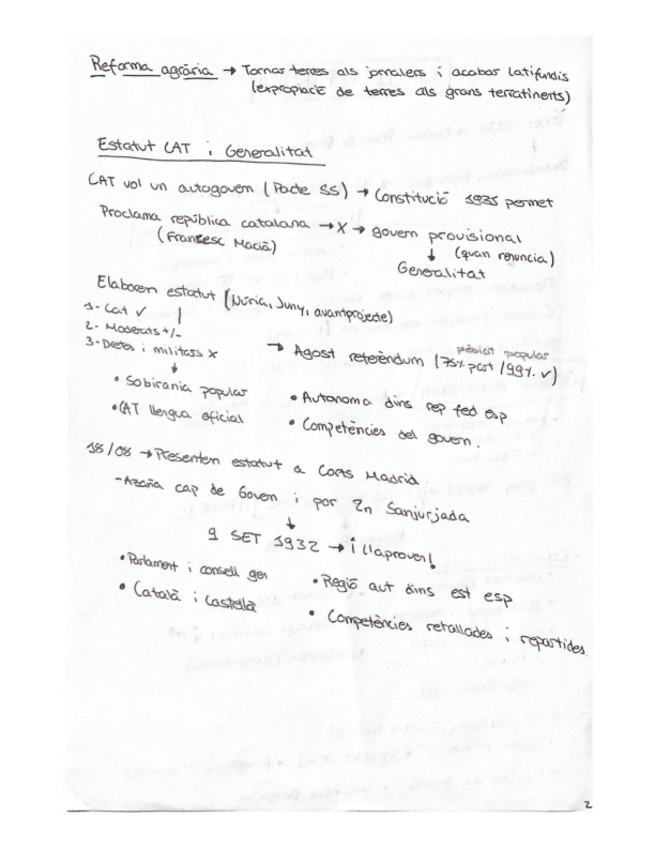 Reforma agrària → Tornar terres als jornalers i acabar latifundis
(expropiació de terres als grans terratinents)
Estatut CAT i Generalitat
CAT vol un autogovern (Pacte SS) → Constitució 1931 permet
Proclama república catalana → X → govern provisional
(Francesc Macià)
↓ (quan renuncia)
Generalitat
Elaboren estatut (Núria, Juny, avantprojecte)
1- Cat ✓
2- Moderats +/-
3- Dretes i militars x
→ Agost referèndum (75% part / 99% ✓)
plebiscit popular
• Sobirania popular
• CAT llengua oficial
• Autonoma dins rep fed esp
• Competències del govern.
18/08 → Presenten estatut a Corts Madrid
- Azaña cap de Govern i por 2n Sanjurjada
↓
9 SET 1932 → i llaproven!
• Parlament i consell gen
• Català i Castellà
• Regió aut dins est esp
• Competències retallades i repartides
2